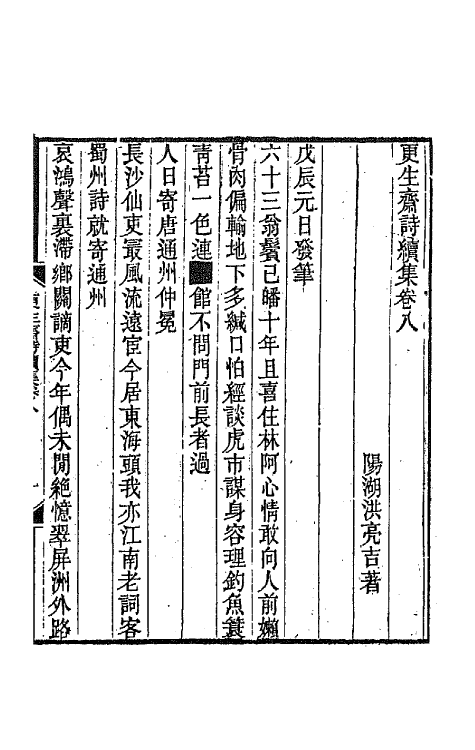 更生齋詩續集卷八
陽湖洪亮吉著
戊辰元日發筆
六十三翁鬢已皤十年且喜住林阿心情敢向人前嬾
骨肉偏輸地下多緘口怕經談虎市謀身容理釣魚蓑
靑苔一色連■館不問門前長者過
人日寄唐通州仲冕
長沙仙吏最風流遠宦今居東海頭我亦江南老詞客
蜀州詩就寄通州
哀鴻聲裏滯鄉關謫吏今年偶未閒絕憶翠屏洲外路
更生齋詩續集卷八